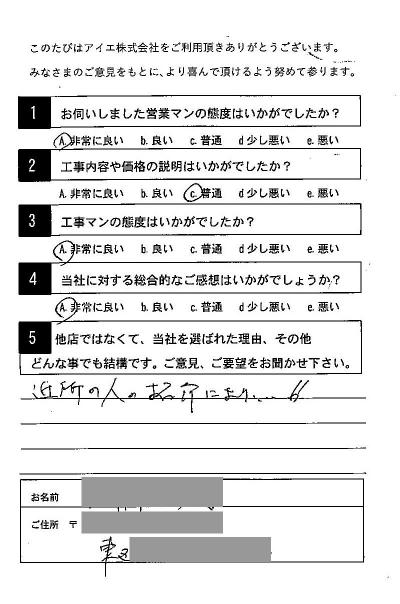 このたびはアイエ株式会社をご利用頂きありがとうございます。
みなさまのご意見をもとに、より喜んで頂けるよう努めて参ります。
1 お伺いしました営業マンの態度はいかがでしたか？
A.非常に良い b.良い c.普通 d少し悪い e.悪い
2 工事内容や価格の説明はいかがでしたか？
A.非常に良い b.良い c.普通 d少し悪い e.悪い
3 工事マンの態度はいかがでしたか？
A.非常に良い b.良い c.普通 d少し悪い e.悪い
4 当社に対する総合的なご感想はいかがでしょうか？
A.非常に良い b.良い c.普通 d少し悪い e.悪い
5 他店ではなくて、当社を選ばれた理由、その他
どんな事でも結構です。ご意見、ご要望をお聞かせ下さい。
近所の人の紹介により…
お名前
ご住所 〒
東区